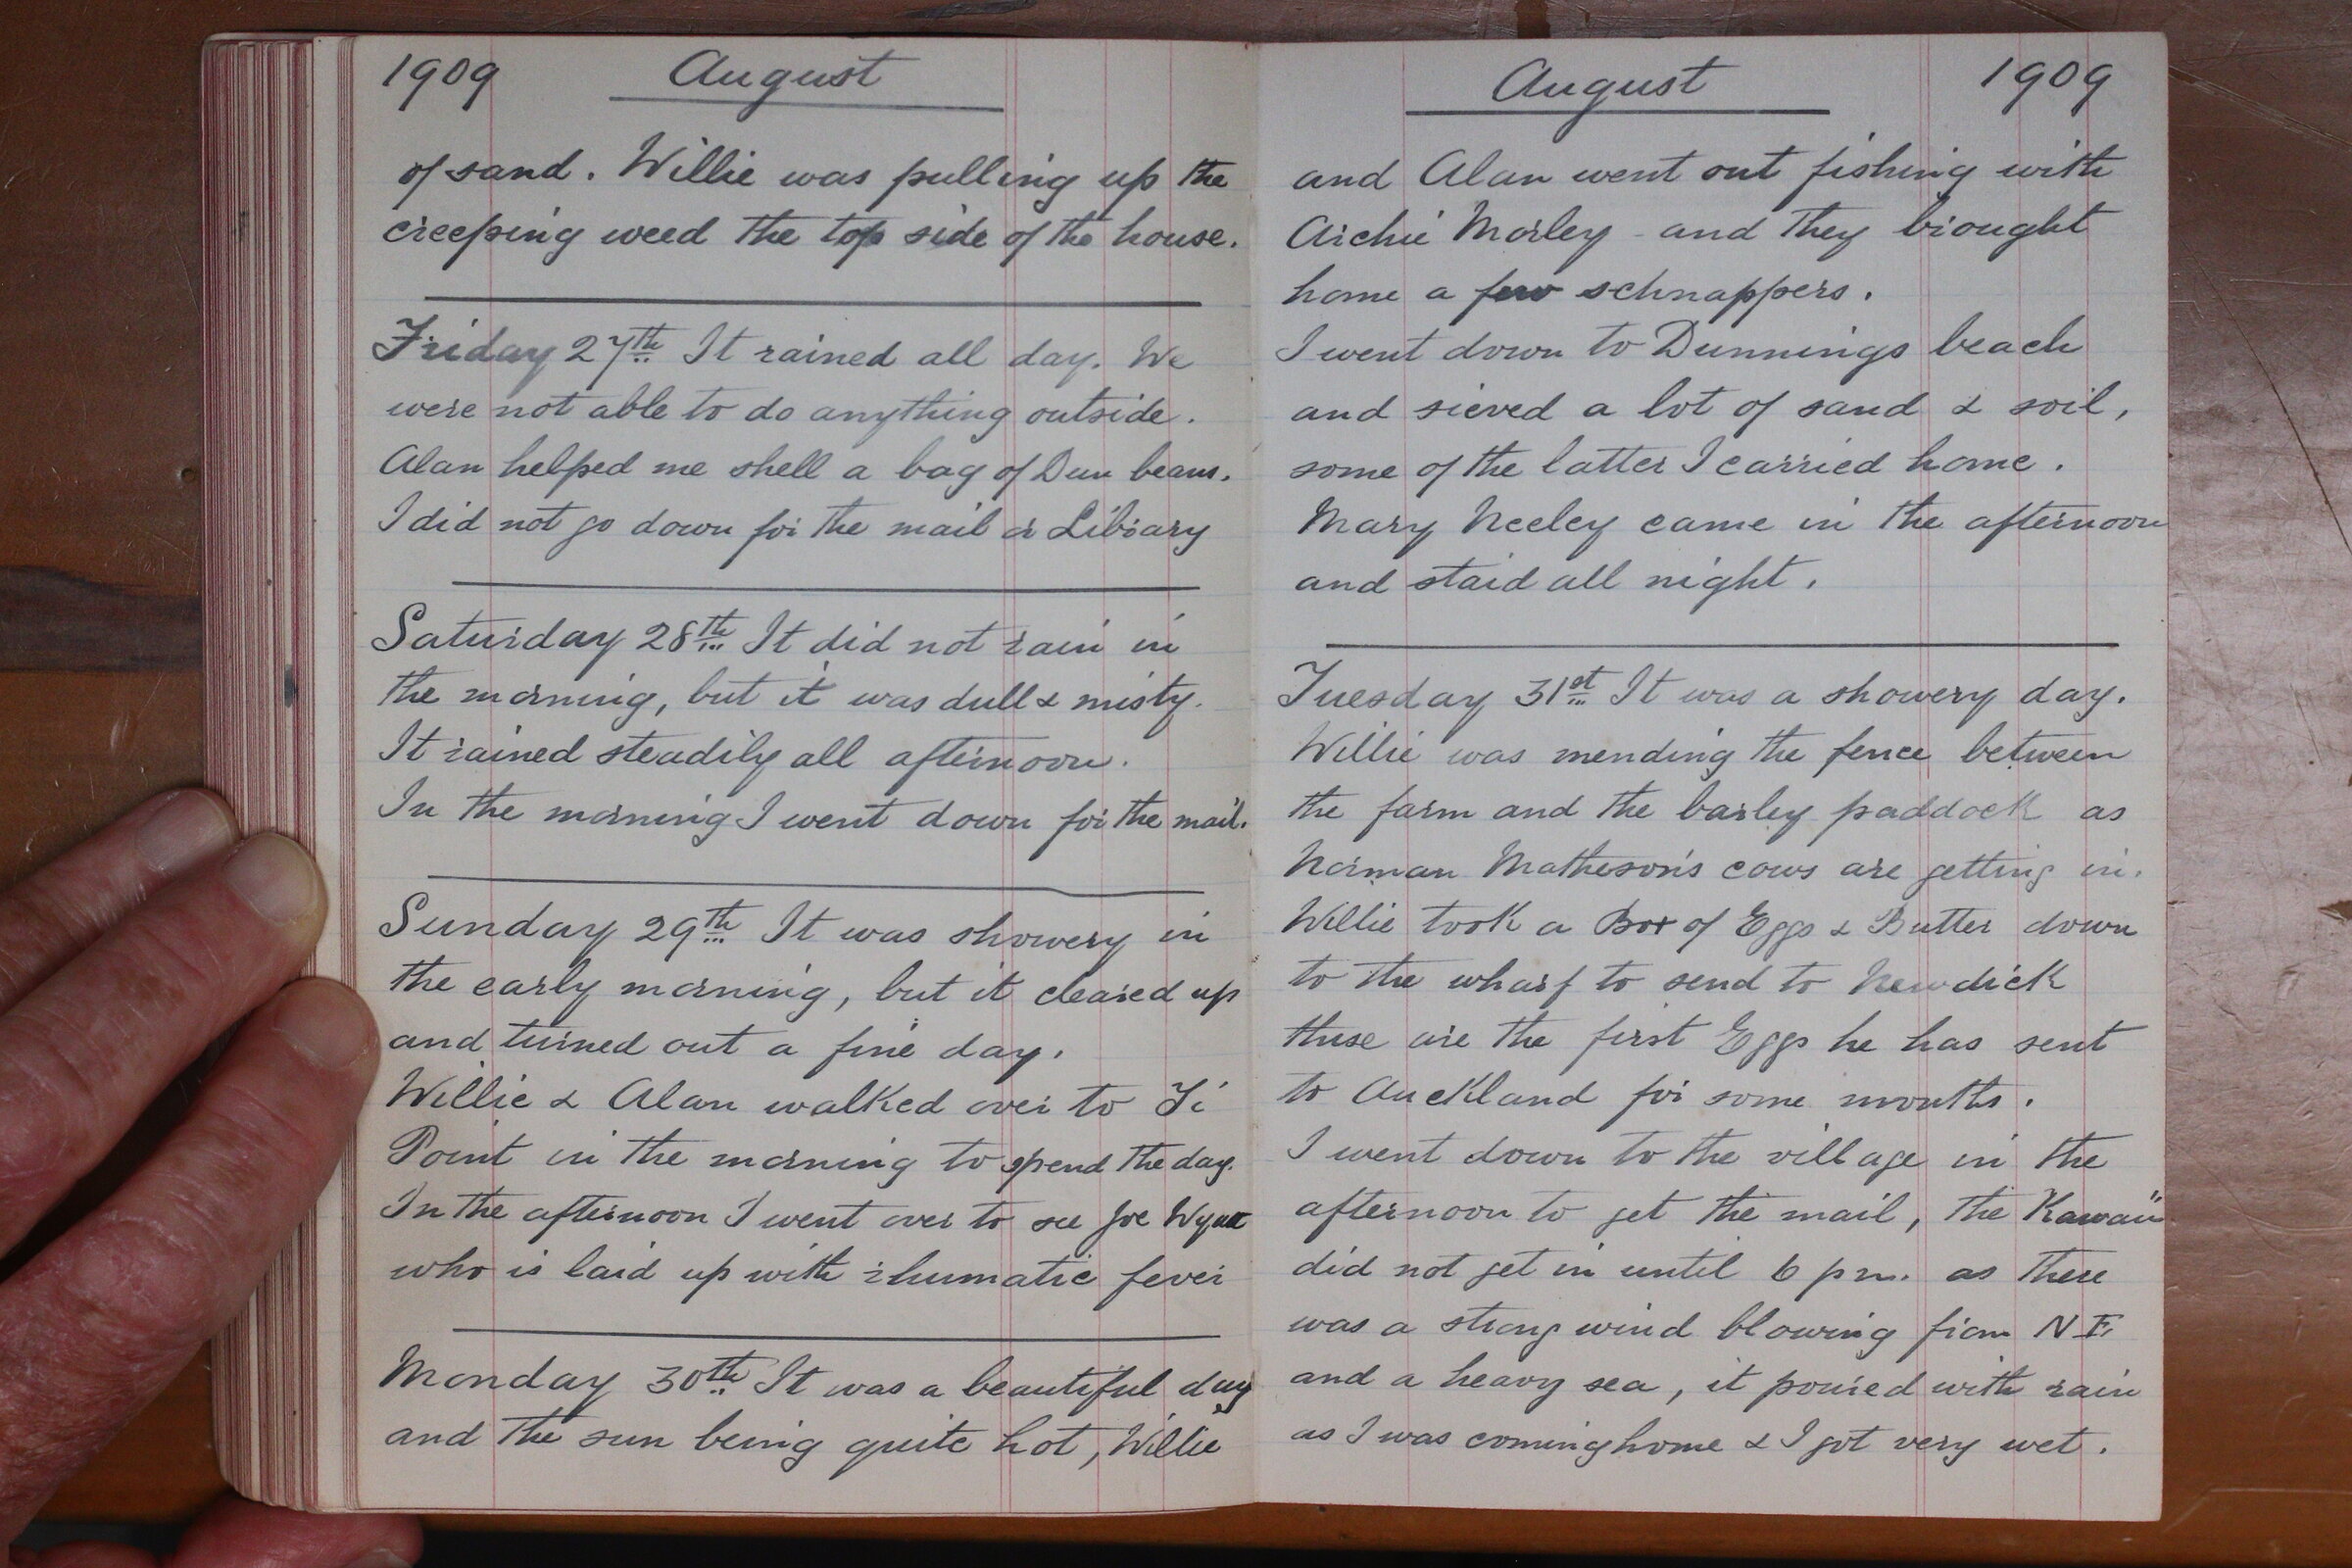 1909 August
of sand. Willie was pulling up the
creeping weed the top side of the house.
Friday 27th It rained all day. We
were not able to do anything outside.
Alan helped me shell a bag of Dun beans.
I did not go down for the mail or Library
Saturday 28th It did not rain in
the morning, but it was dull & misty.
It rained steadily all afternoon.
In the morning I went down for the mail.
Sunday 29th It was showery in
the early morning, but it cleared up
and turned out a fine day.
Willie & Alan walked over to Ti
Point in the morning to spend the day.
In the afternoon I went over to see Joe Wyatt
who is laid up with rhumatic fever
Monday 30th It was a beautiful day
and the sun being quite hot, Willie
August 1909
and Alan went out fishing with
Archie Morley and they brought
home a few schnappers.
I went down to Dunnings beach
and sieved a lot of sand & soil,
some of the latter I carried home.
Mary Neeley came in the afternoon
and staid all night.
Tuesday 31st It was a showery day.
Willie was mending the fence between
the farm and the barley paddock as
Norman Matheson's cows are getting in.
Willie took a Box of Eggs & Butter down
to the wharf to send to Newdick
these are the first Eggs he has sent
to Auckland for some months.
I went down to the village in the
afternoon to get the mail, the Kawau"
did not get in until 6 pm. as there
was a strong wind blowing from N E,
and a heavy sea, it poured with rain
as I was coming home & I got very wet.